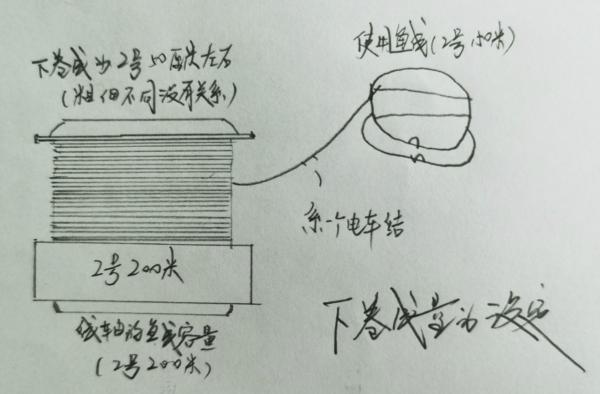 使用鱼线(2号50米)
下卷线为2号50码左右
(粗细不同没有关系)
系一个电车结
2号200米
线轴的鱼线容量
(2号200米)
下卷线量为